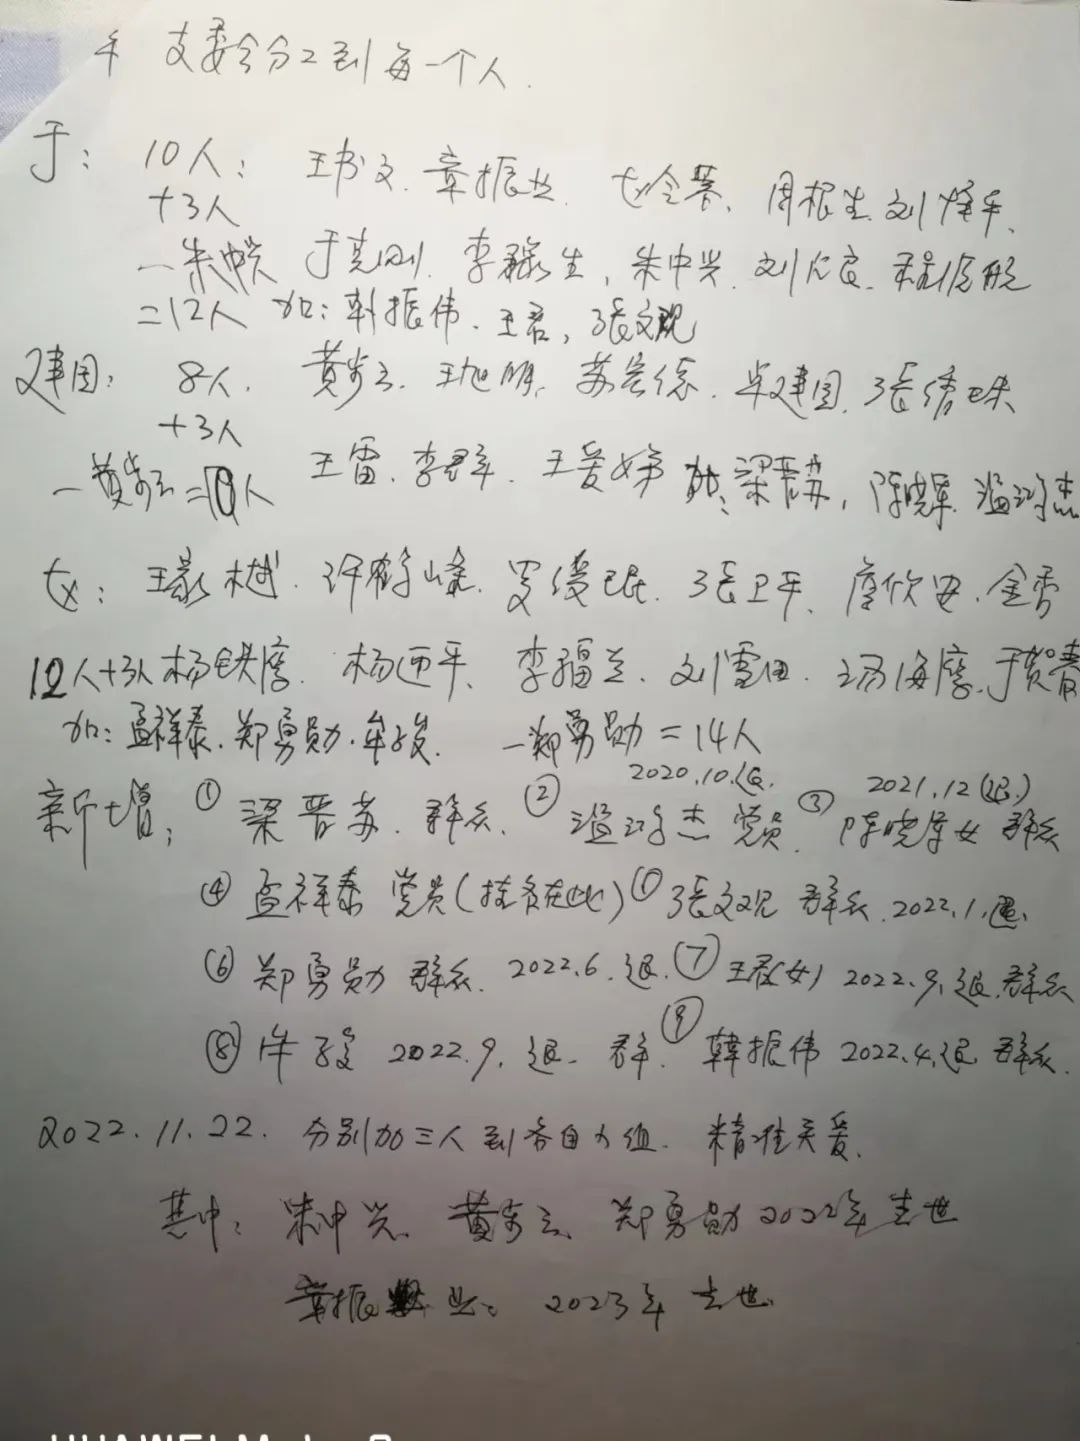 支委会分工到每一个人.
于: 10人: 王书文. 章振业. 周根生. 刘
+3人
一朱中兴 于克刚. 李禄生, 朱中兴. 刘
=12人 加: 韩振伟. 王君, 张文观
建国: 8人. 黄步云. 王旭明. 苏宏德. 牟建国. 张绣珠
+3人
一黄步云=10人 王雷. 李群. 王爱娣 加: 梁晋苏, 陈晓军. 杰
王 樾. 许鹤峰. 罗俊民. 张卫平. 詹欣安. 金秀
12人+3人 杨铁摩. 杨西平. 李福兰. 刘雪田. 汤海摩. 于贺春
加: 孟祥泰. 郑勇勋. 牟 一郑勇勋=14人
2020.10.退. 2021.12(退.)
新增: ① 梁晋苏. 群众. ② 杰 党员. ③ 陈晓军女 群众
④ 孟祥泰 党员(挂 在此) ⑤ 张文观 群众. 2022.1.退.
⑥ 郑勇勋 群众. 2022.6.退. ⑦ 王君(女) 2022.9.退.群众
⑧ 牟 2022.9.退. 群. ⑨ 韩振伟 2022.4.退 群众.
2022.11.22. 分别加三人到各自小组. 精准关爱.
其中: 朱中兴. 黄步云. 郑勇勋2022年去世
章振业. 2023年去世.
HUAWEI M